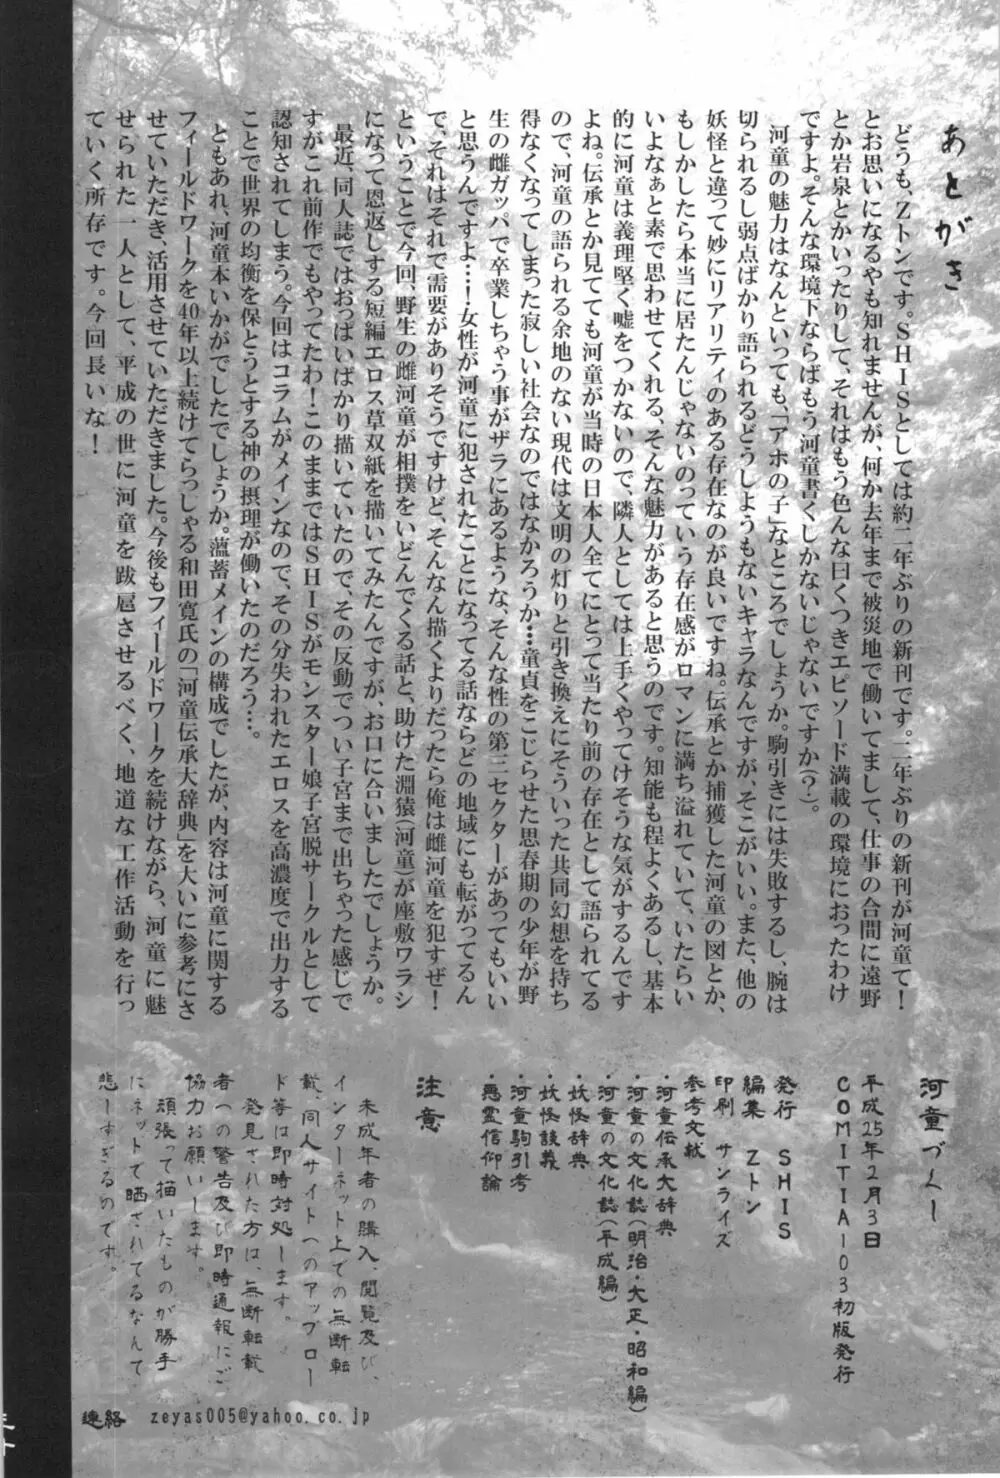 あとがき
どうも、Zトンです。SHISとしては約二年ぶりの新刊です。二年ぶりの新刊が河童て！
とお思いになるやも知れませんが、何か去年まで被災地で働いてまして、仕事の合間に遠野
とか岩泉とかいったりして、それはもう色んな曰くつきエピソード満載の環境におったわけ
ですよ。そんな環境下ならばもう河童書くしかないじゃないですか（？）。
河童の魅力はなんといっても、「アホの子」なところでしょうか。駒引きには失敗するし、腕は
切られるし弱点ばかり語られるどうしようもないキャラなんですが、そこがいい。また、他の
妖怪と違って妙にリアリティのある存在なのが良いですね。伝承とか捕獲した河童の図とか、
もしかしたら本当に居たんじゃないのっていう存在感がロマンに満ち溢れていて、いたらい
いよなぁと素で思わせてくれる、そんな魅力があると思うのです。知能も程よくあるし、基本
的に河童は義理堅く嘘をつかないので、隣人としては上手くやってけそうな気がするんです
よね。伝承とか見てても河童が当時の日本人全てにとって当たり前の存在として語られてる
ので、河童の語られる余地のない現代は文明の灯りと引き換えにそういった共同幻想を持ち
得なくなってしまった寂しい社会なのではなかろうか…童貞をこじらせた思春期の少年が野
生の雌ガッパで卒業しちゃう事がザラにあるような、そんな性の第三セクターがあってもいい
と思うんですよ…！女性が河童に犯されたことになってる話ならどの地域にも転がってるん
で、それはそれで需要がありそうですけど、そんなん描くよりだったら俺は雌河童を犯すぜ！
ということで今回、野生の雌河童が相撲をいどんでくる話と、助けた淵猿（河童）が座敷ワラシ
になって恩返しする短編エロス草双紙を描いてみたんですが、お口に合いましたでしょうか。
最近、同人誌ではおっぱいばかり描いていたので、その反動でつい子宮まで出ちゃった感じで
すがこれ前作でもやってたわ！このままではSHISがモンスター娘子宮脱サークルとして
認知されてしまう。今回はコラムがメインなので、その分失われたエロスを高濃度で出力する
ことで世界の均衡を保とうとする神の摂理が働いたのだろう…。
ともあれ、河童本いかがでしたでしょうか。薀蓄メインの構成でしたが、内容は河童に関する
フィールドワークを40年以上続けてらっしゃる和田寛氏の「河童伝承大辞典」を大いに参考にさ
せていただき、活用させていただきました。今後もフィールドワークを続けながら、河童に魅
せられた一人として、平成の世に河童を跋扈させるべく、地道な工作活動を行っ
ていく所存です。今回長いな！
河童づくし
平成25年2月3日
COMITIA103初版発行
発行 SHIS
編集 Zトン
印刷 サンライズ
参考文献
・河童伝承大辞典
・河童の文化誌（明治・大正・昭和編）
・河童の文化誌（平成編）
・妖怪辞典
・妖怪談義
・河童駒引考
・悪霊信仰論
注意
未成年者の購入、閲覧及び、
インターネット上での無断転
載、同人サイトへのアップロー
ド等は即時対処します。
発見された方は、無断転載
者への警告及び即時通報にご
協力お願いします。
頑張って描いたものが勝手
にネットで晒されてるなんて
悲しすぎるのです。
連絡 zeyas005@yahoo.co.jp